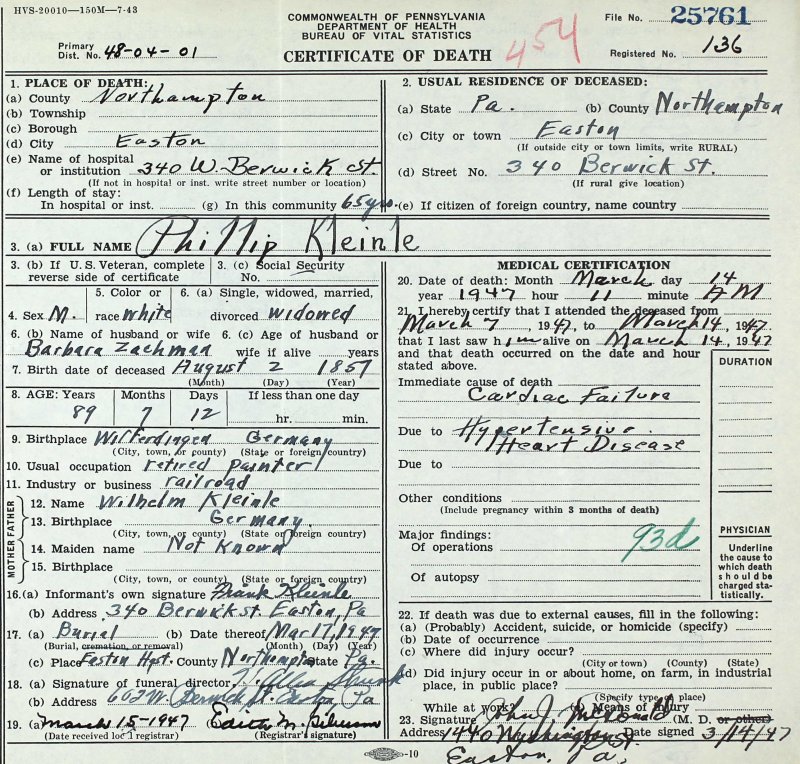 HVS-20010—150M—7-43
COMMONWEALTH OF PENNSYLVANIA
DEPARTMENT OF HEALTH
BUREAU OF VITAL STATISTICS
CERTIFICATE OF DEATH
454
File No. 25761
Registered No. 136
Primary
Dist. No. 48-04-01
1. PLACE OF DEATH:
(a) County Northampton
(b) Township
(c) Borough
(d) City Easton
(e) Name of hospital
or institution 340 W. Berwick St.
(If not in hospital or inst. write street number or location)
(f) Length of stay:
In hospital or inst. (g) In this community 65 yrs.
2. USUAL RESIDENCE OF DECEASED:
(a) State Pa. (b) County Northampton
(c) City or town Easton
(If outside city or town limits, write RURAL)
(d) Street No. 340 Berwick St.
(If rural give location)
(e) If citizen of foreign country, name country
3. (a) FULL NAME Phillip Kleinle
3. (b) If U.S. Veteran, complete
reverse side of certificate
3. (c) Social Security
No.
4. Sex M.
5. Color or
race white
6. (a) Single, widowed, married,
divorced widowed
6. (b) Name of husband or wife
Barbara Zachman
6. (c) Age of husband or
wife if alive years
7. Birth date of deceased August 2 1857
(Month) (Day) (Year)
8. AGE: Years Months Days If less than one day
89 7 12 hr. min.
9. Birthplace Wilferdingen Germany
(City, town, or county) (State or foreign country)
10. Usual occupation retired painter
11. Industry or business railroad
FATHER
12. Name Wilhelm Kleinle
13. Birthplace Germany.
(City, town, or county) (State or foreign country)
MOTHER
14. Maiden name Not Known
15. Birthplace
(City, town, or county) (State or foreign country)
16. (a) Informant's own signature Frank Kleinle
(b) Address 340 Berwick st. Easton, Pa
17. (a) Burial (b) Date thereof Mar 17, 1947
(Burial, cremation, or removal) (Month) (Day) (Year)
(c) Place Easton Hgt. County Northampton State Pa.
18. (a) Signature of funeral director
(b) Address 602 W. Berwick St. Easton Pa
19. (a) March 15-1947 Edith M.
(Date received local registrar) (Registrar's signature)
MEDICAL CERTIFICATION
20. Date of death: Month March day 14
year 1947 hour 11 minute AM
21. I hereby certify that I attended the deceased from
March 7, 1947, to March 14, 1947
that I last saw him alive on March 14, 1947
and that death occurred on the date and hour
stated above.
DURATION
Immediate cause of death
Cardiac Failure
Due to Hypertensive
Heart Disease
Due to
Other conditions
(Include pregnancy within 3 months of death)
Major findings:
Of operations 93d
Of autopsy
PHYSICIAN
Underline
the cause to
which death
should be
charged sta-
tistically.
22. If death was due to external causes, fill in the following:
(a) (Probably) Accident, suicide, or homicide (specify)
(b) Date of occurrence
(c) Where did injury occur?
(City or town) (County) (State)
(d) Did injury occur in or about home, on farm, in industrial
place, in public place?
(Specify type of place)
While at work? (e) Means of injury
23. Signature John J. McDonald (M. D. or other)
Address 1440 Washington St. Date signed 3/14/47
Easton, Pa.
-10